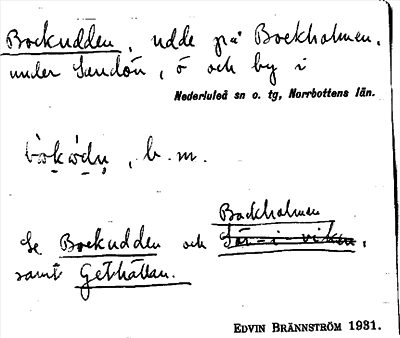 Bockudden, udde på Bockholmen,
under Sandön, ö och by i
Nederluleå sn o. tg, Norrbottens län.
, b. m.
Bockholmen
Se Bockudden och Sör-i-viken,
samt Gethällan.
EDVIN BRÄNNSTRÖM 1931.